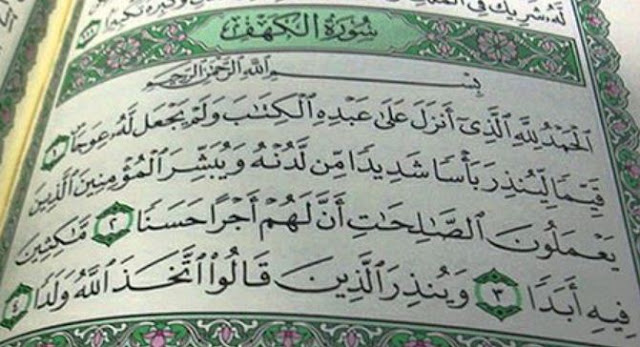 لَّهُۥ شَرِيكٌ فِى ٱلْمُلْكِ
وَكَبِّرْهُ تَكْبِيرًۢا ١١١
سُورَةُ الكَهْفِ
بِسْمِ ٱللَّهِ ٱلرَّحْمَٰنِ ٱلرَّحِيمِ
ٱلْحَمْدُ لِلَّهِ ٱلَّذِىٓ أَنزَلَ عَلَىٰ عَبْدِهِ ٱلْكِتَٰبَ وَلَمْ يَجْعَل لَّهُۥ عِوَجَا ١
قَيِّمًا لِّيُنذِرَ بَأْسًا شَدِيدًا مِّن لَّدُنْهُ وَيُبَشِّرَ ٱلْمُؤْمِنِينَ ٱلَّذِينَ
يَعْمَلُونَ ٱلصَّٰلِحَٰتِ أَنَّ لَهُمْ أَجْرًا حَسَنًا ٢ مَّٰكِثِينَ
فِيهِ أَبَدًا ٣ وَيُنذِرَ ٱلَّذِينَ قَالُوا۟ ٱتَّخَذَ ٱللَّهُ وَلَدًا ٤